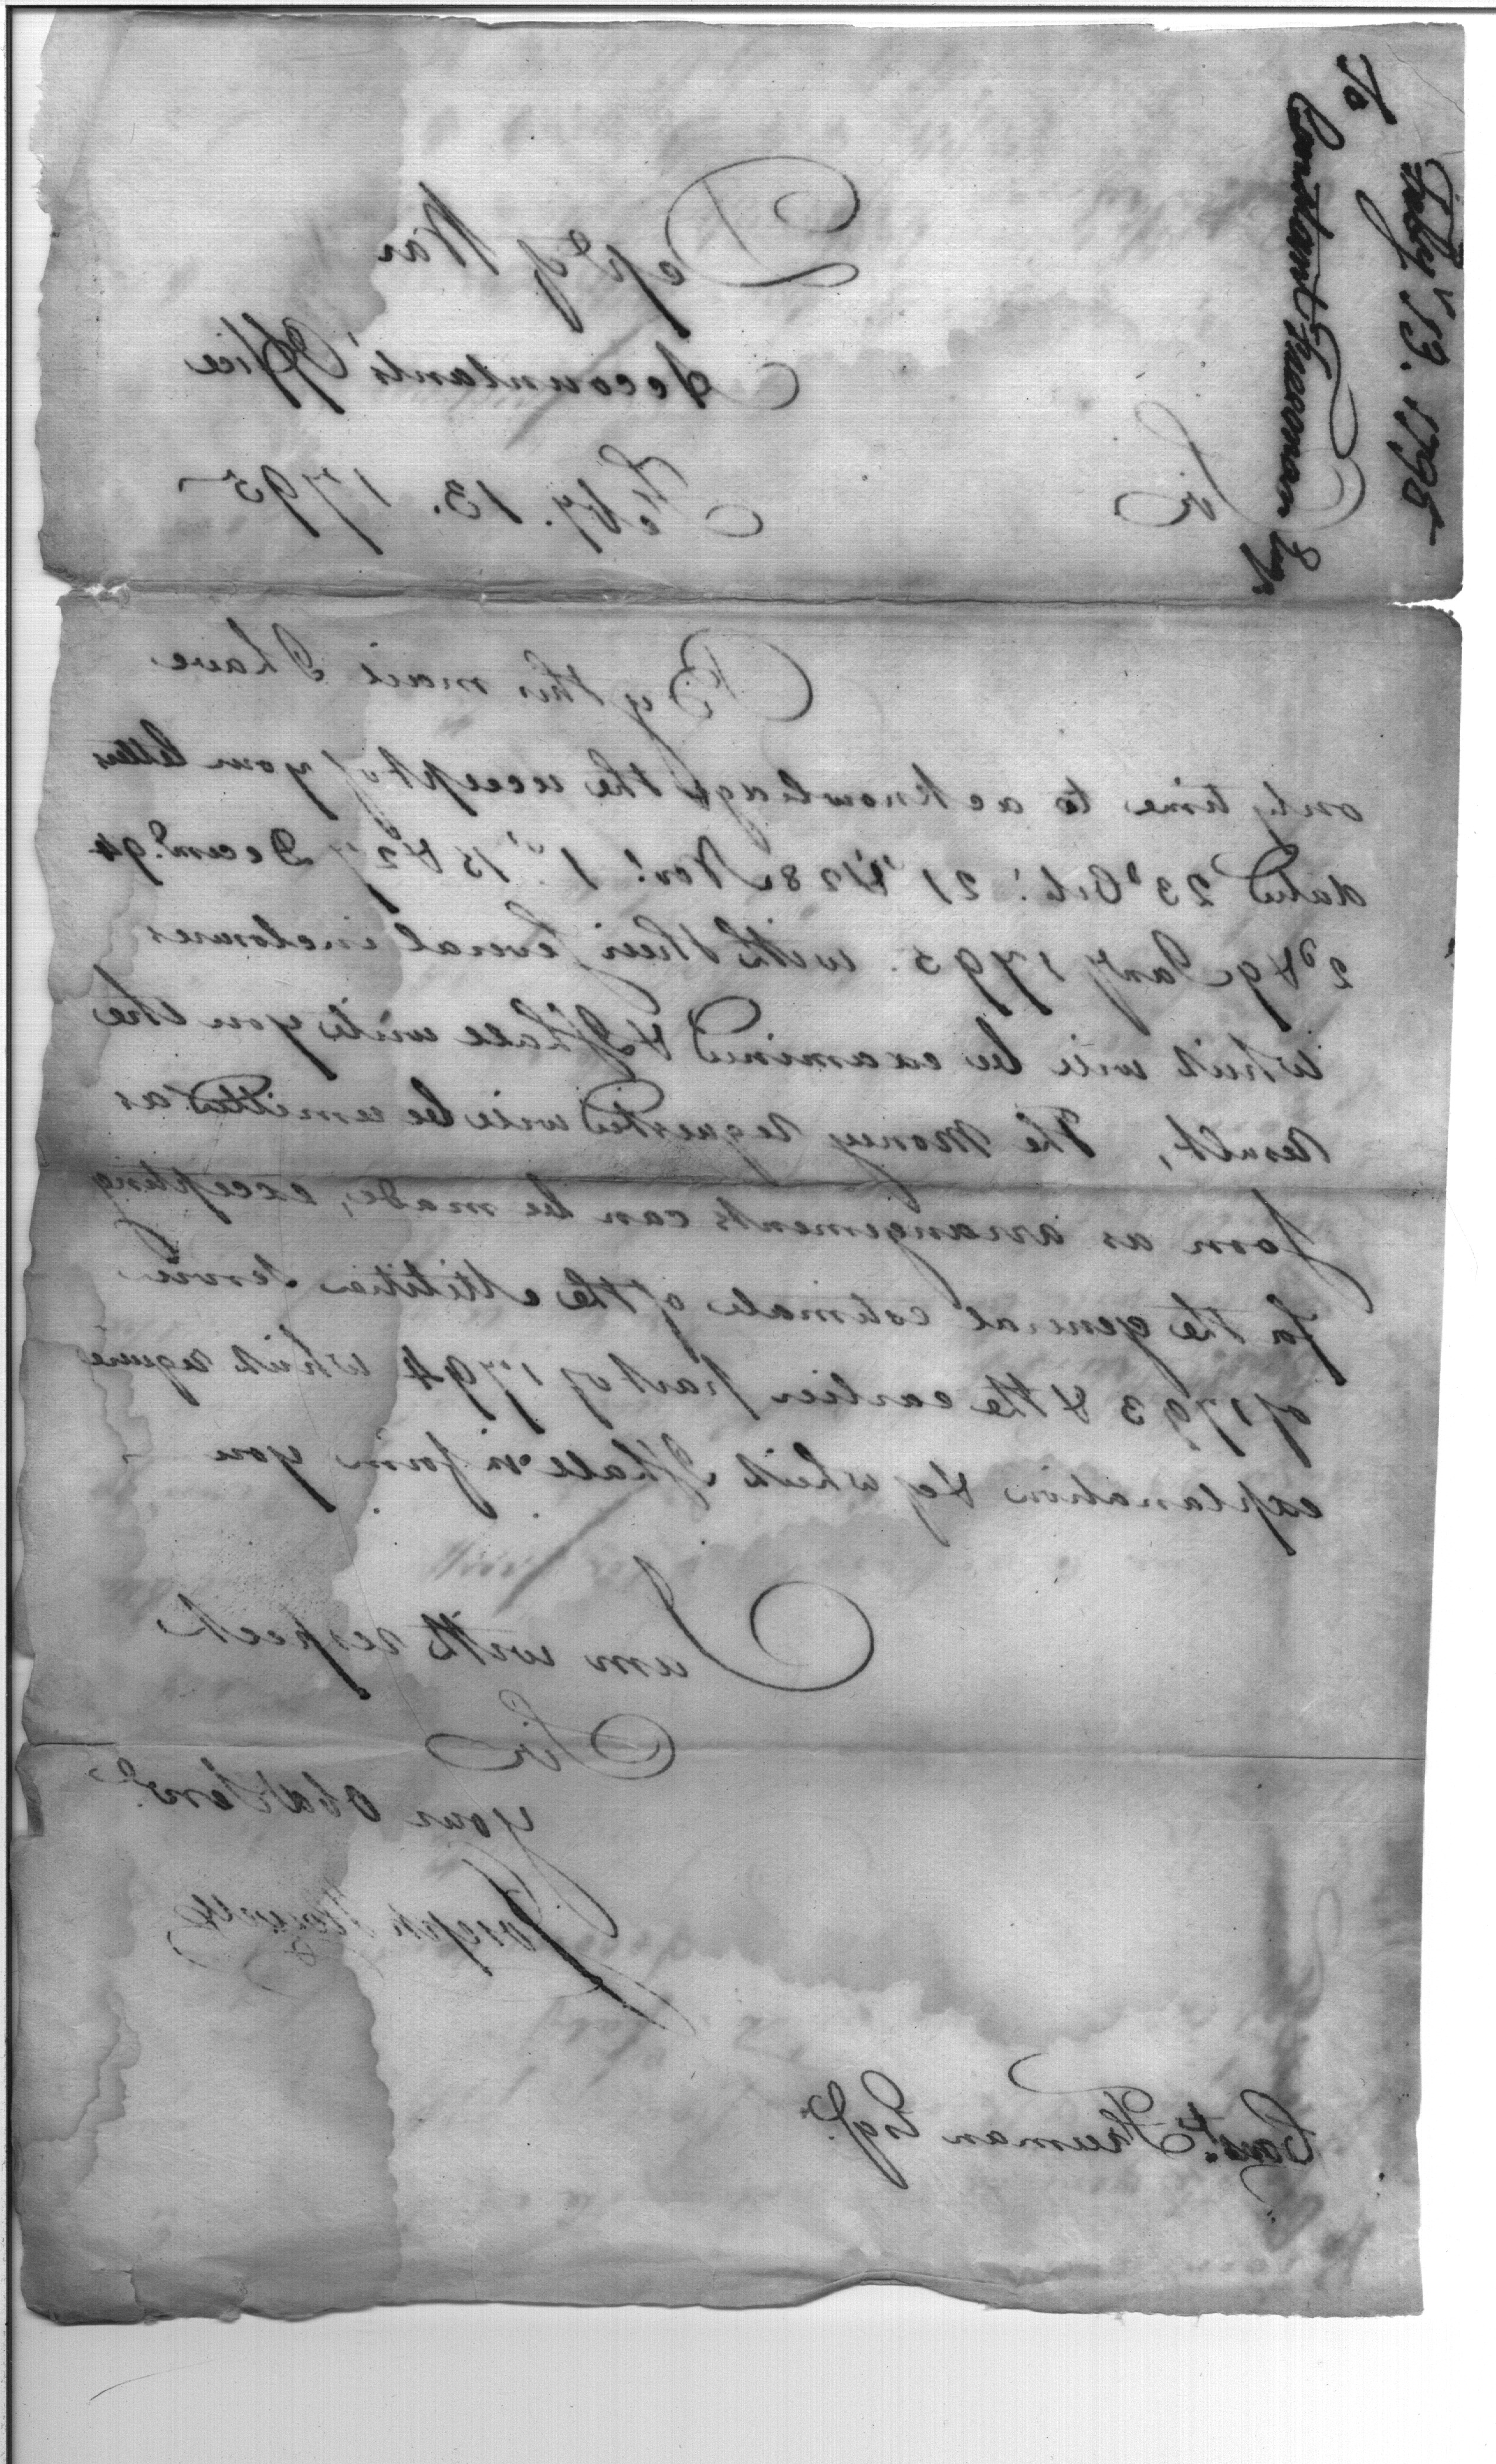 To
Constant Freeman Esqr
Feby 13. 1795
Dept of War
Accountants Office
Feby. 13. 1795
Sir
By this mail I have
only time to acknowledge the receipt of your letters
dated 23d Octr. 21st & 28 Novr. 1st. 15 & 27 Decemr. 94
2d & 9 Jany 1795. with their several inclosures
which will be examined & I shall write you the
result, The Money requested will be remitted as
soon as arrangements can be made, excepting
for the general estimate of the Militia Service
of 1793 & the earlier part of 1794 which require
explanation by which I shall inform you
I am with respect
Sir
Your Obdt Servt.
Joseph Howell
Const. Freeman Esqr.